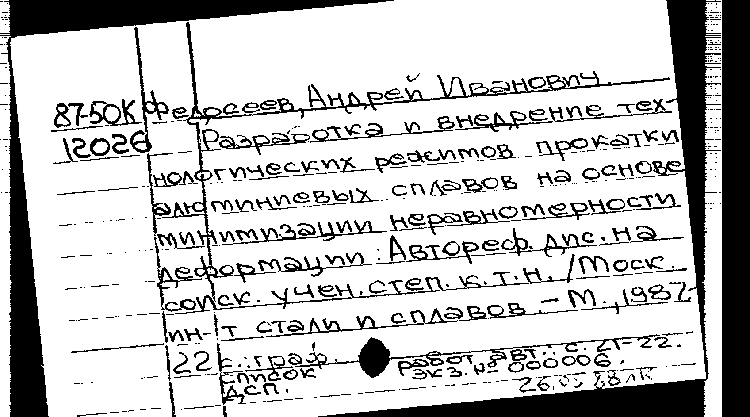 87-50К Федосеев, Андрей Иванович.
12026 Разработка и внедрение тех-
нологических режимов прокатки
алюминиевых сплавов на основе
минимизации неравномерности
деформации: Автореф. дис. на
соиск. учен. степ. к.т.н. /Моск.
ин-т стали и сплавов. - М., 1987.
22 с.: граф.
Список работ авт.: с. 21-22.
ДСП. Экз. № 000006.